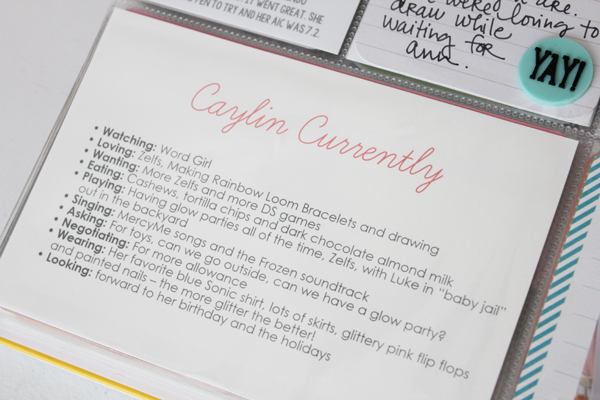 IT WENT GREAT. SHE
EVEN TO TRY AND HER A1C WAS 7.2.
are.
loving to
draw while
waiting for
YAY!
Caylin Currently
• Watching: Word Girl
• Loving: Zelfs, Making Rainbow Loom Bracelets and drawing
• Wanting: More Zelfs and more DS games
• Eating: Cashews, tortilla chips and dark chocolate almond milk
• Playing: Having glow parties all of the time, Zelfs, with Luke in "baby jail"
out in the backyard
• Singing: MercyMe songs and the Frozen soundtrack
• Asking: For toys, can we go outside, can we have a glow party?
• Negotiating: For more allowance
• Wearing: Her favorite blue Sonic shirt, lots of skirts, glittery pink flip flops
and painted nails – the more glitter the better!
• Looking: forward to her birthday and the holidays